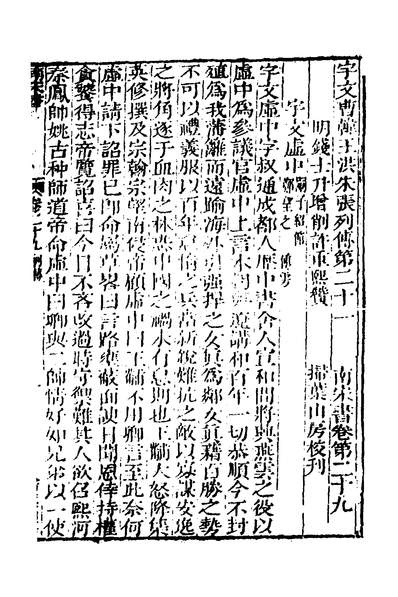 宇文曹韓王洪朱張列傳第二十一　南宋書卷第二十九
明錢士升增削許重熙贊　掃葉山房校刊
宇文虛中 附子紹節 鄭望之
宇文虛中字叔通成都人歷中書舍人宣和間將興燕雲之役以
虛中為參議官虛中上言本朝與遼講和百年一切恭順今不封
殖為我藩籬而遠踰海外引強捍之女真為鄰女真藉百勝之勢
不可以禮義服以百年怠惰之兵當新銳難抗之敵以寡謀安逸
之將角逐于血肉之林恐中國之禍未有息期也王黼大怒降集
英修撰及宗翰宗望南侵帝顧虛中曰王黼不用卿言至此奈何
虛中請下詔罪已即命為草畧曰言路壅蔽面諛日聞恩倖持權
貪饕得志帝覽詔喜曰今日不吝改過時守禦難其人欲召熙河
秦鳳帥姚古种師道帝命虛中曰卿與二帥情好如兄弟以一使
南宋書　卷二十九　列傳